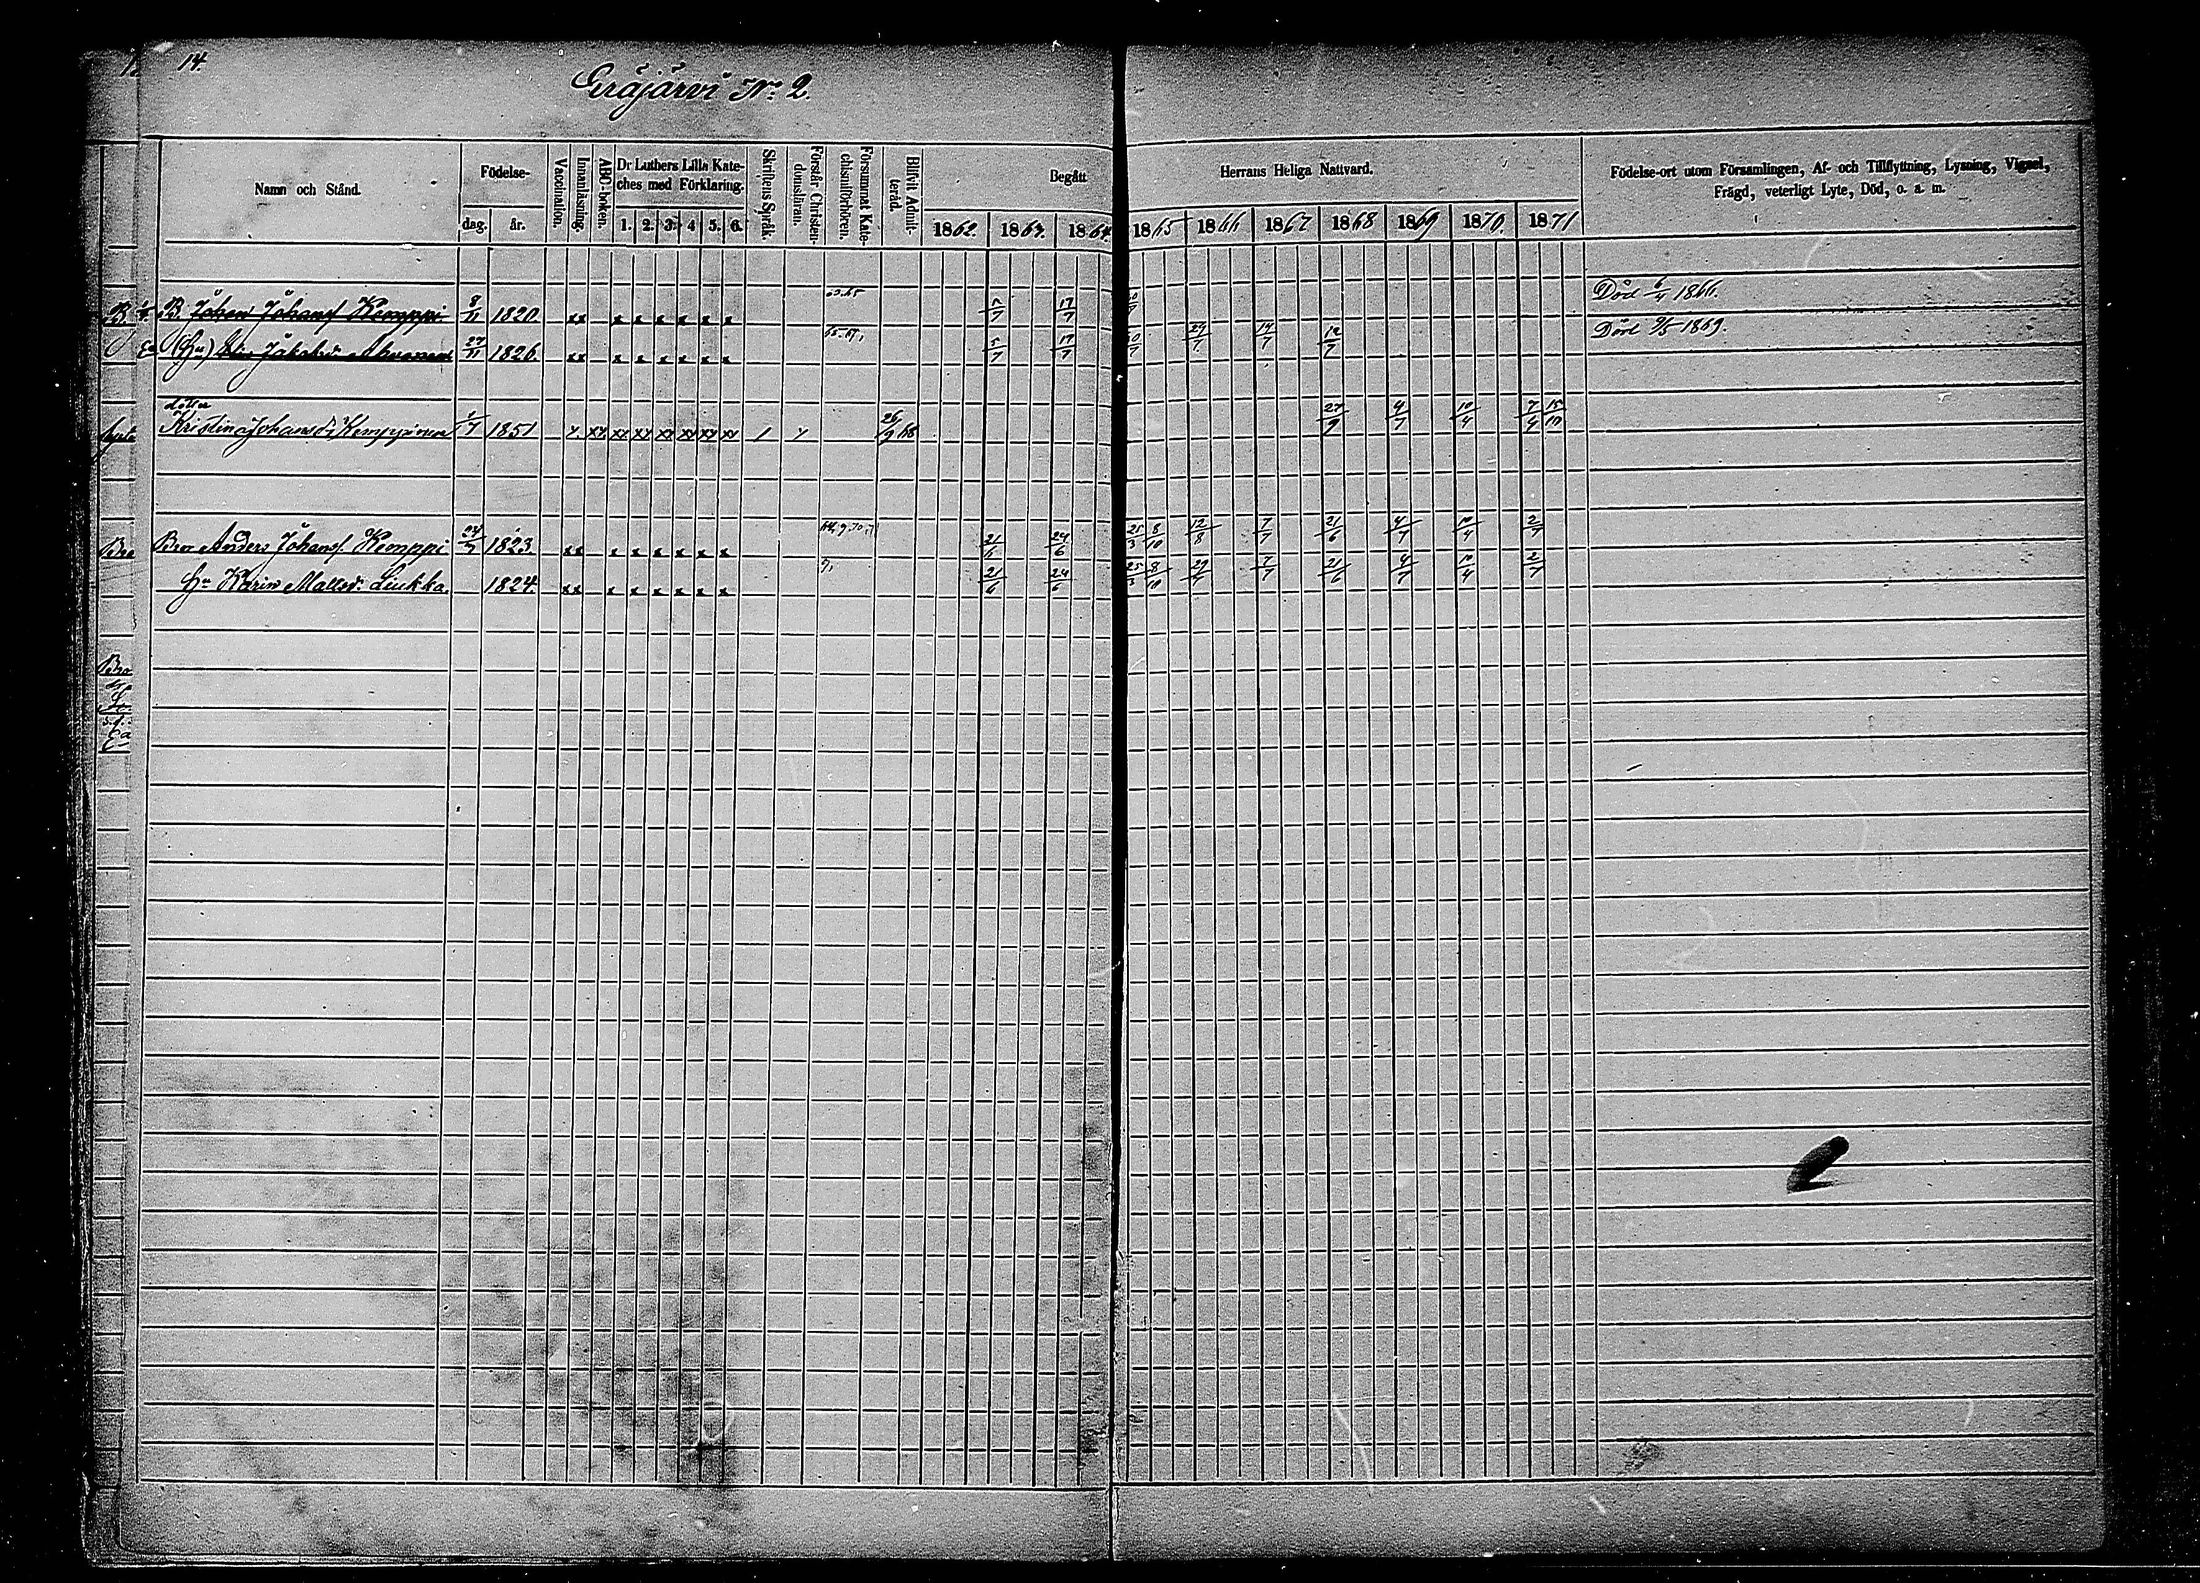 14.
Eräjärvi No. 2.
Namn och Stånd.
Födelse-
dag. år.
Vaccination.
Innanläsning.
ABC-boken.
Dr Luthers Lilla Kate-
ches med Förklaring.
1. 2. 3. 4 5. 6.
Skriftens Språk.
Förstår Christen-
domslären.
Försummat Kate-
chismiförhören.
Blifvit Admit-
terad.
Begått Herrans Heliga Nattvard.
1862. 1863. 1864. 1865 1866 1867 1868 1869 1870. 1871
Födelse-ort utom Församlingen, Af- och Tillflyttning, Lysning, Vigsel,
Frägd, veterligt Lyte, Död, o. a. m.
B. Johan Johansf Kemppi 8/11 1820 xx x x x x x x 5/7 17/7 Död 6/4 1866.
(Hu) 27/11 1826. xx x x x x x x 5/7 17/7 14/7 12/7 Död 1869.
dotter
Kristina Johansdr Kemppinen 1851 26/9 68 27/9 4/7 10/4 7/4 15/10
Bror Anders Johansf. Kemppi 1823 xx x x x x x x 21/6 24/6 25/3 8/10 12/8 7/7 21/6 4/7 10/4 2/7
Hu Karin Mattsdr. Liukka. 1824. xx x x x x x x 21/6 24/6 25/3 8/10 7/7 21/6 4/7 10/4 2/7